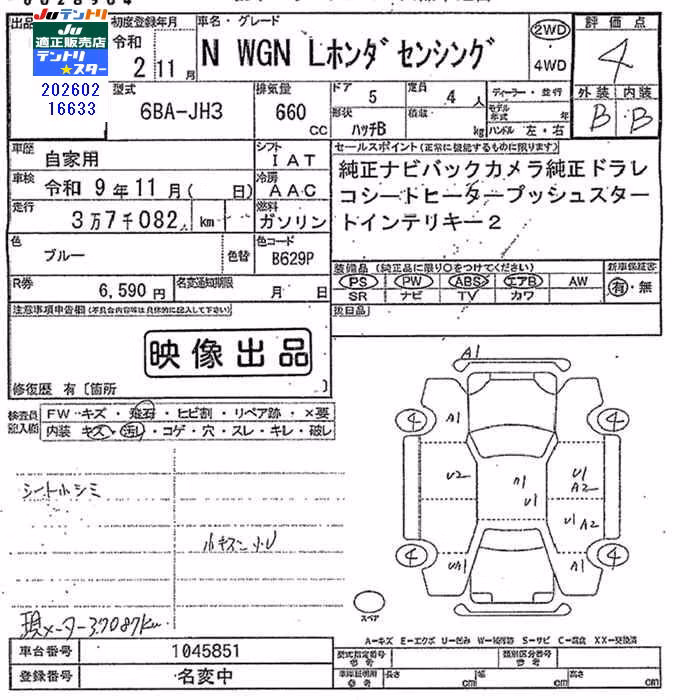 Juテントリ
Ju
適正販売店
テントリ
★スター
202602
16633
初度登録年月
令和
2 11月
車名・グレード
N WGN Lホンダセンシング
2WD
4WD
評価点
4
外装 内装
B B
型式
6BA-JH3
排気量
660
CC
ドア
5
定員
4 人
形状
ハッチB
積載
kg
ディーラー・並行
モデル年式 年
ハンドル 左・右
車歴
自家用
シフト
IAT
車検
令和 9年11月( 日)
冷房
AAC
走行
3万7千082 km
燃料
ガソリン
色
ブルー
色替
色コード
B629P
R券
6,590円
名変通知期限
月 日
セールスポイント(正常に機能するものに限ります)
純正ナビバックカメラ純正ドラレ
コシートヒータープッシュスター
トインテリキー2
装備品(純正品に限り○をつけてください)
PS PW ABS エアB AW
SR ナビ TV カワ
新車保証書
有・無
後日品
注意事項申告欄(不具合内容等は具体的に記入して下さい)
映像出品
修復歴 有〔箇所 〕
検査員記入欄
FW キズ・飛石・ヒビ割・リペア跡・×要
内装 キズ・汚レ・コゲ・穴・スレ・キレ・破レ
シート小シミ
小キズ小U
現メーター37087km
A1
4 A1 4
U2 A1 U1 U1 A2
U1 A2
4 UA1 A1 4
スペア
A=キズ E=エクボ U=凹み W=補修跡 S=サビ C=腐食 XX=交換済
車台番号
1045851
登録番号
名変中
型式指定番号
参考
類別区分番号
参考
車庫証明用
参考
長さ cm
幅 cm
高さ cm